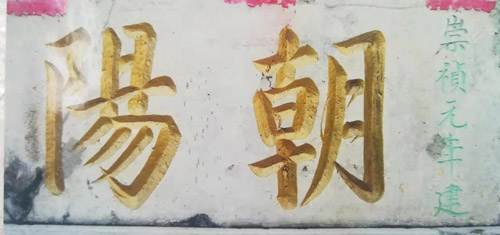 崇禎元年建
朝陽